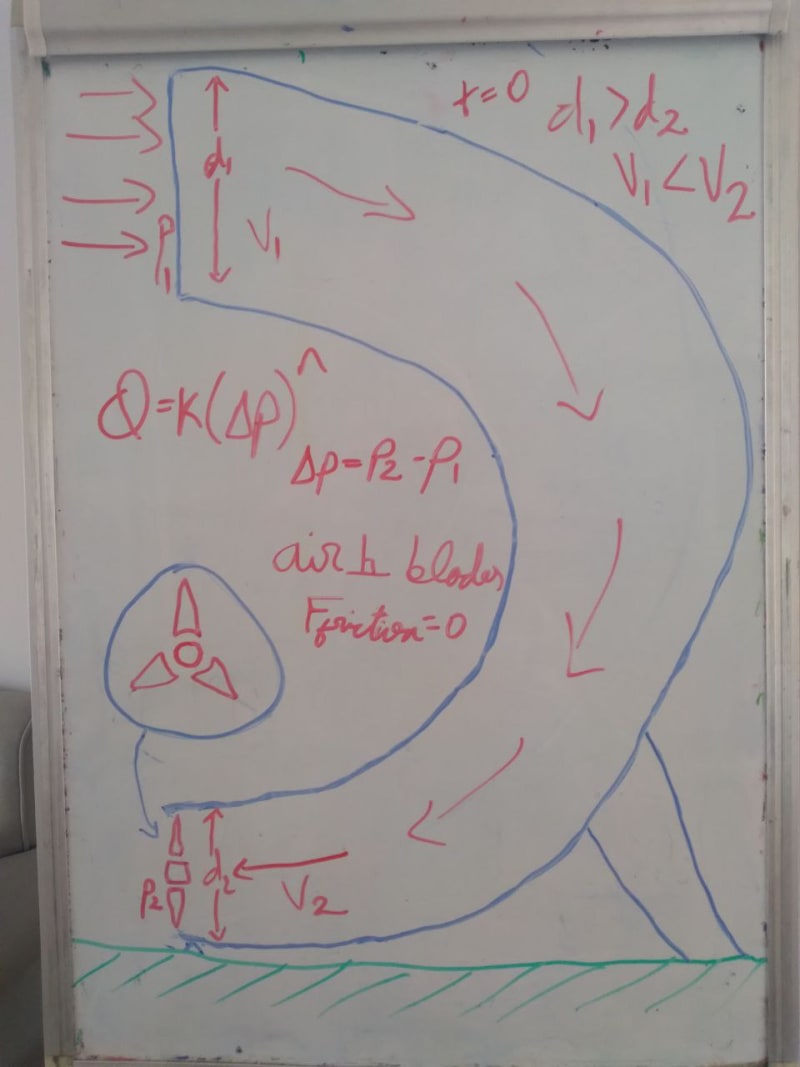 t=0 d₁>d₂
V₁<V₂
d₁
P₁
V₁
Q=K(Δp)^n
Δp=P₂-P₁
air ⊥ blades
Ffriction=0
P₂
d₂
V₂